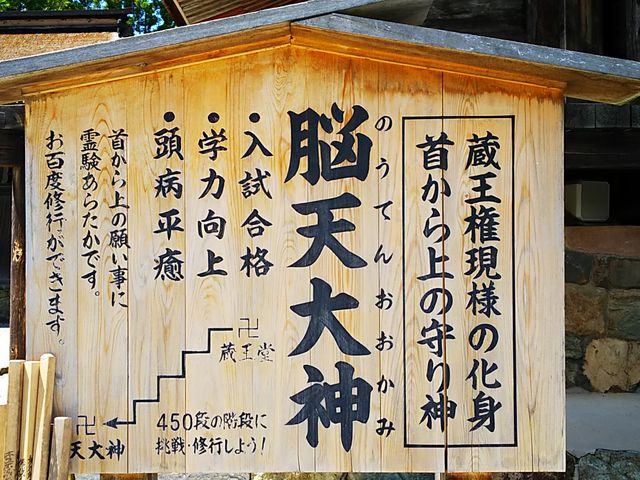 蔵王権現様の化身
首から上の守り神
のうてんおおかみ
脳天大神
・入試合格
・学力向上
・頭病平癒
首から上の願い事に
霊験あらたかです。
お百度修行ができます。
卍
蔵王堂
450段の階段に
挑戦・修行しよう!
卍
天大神